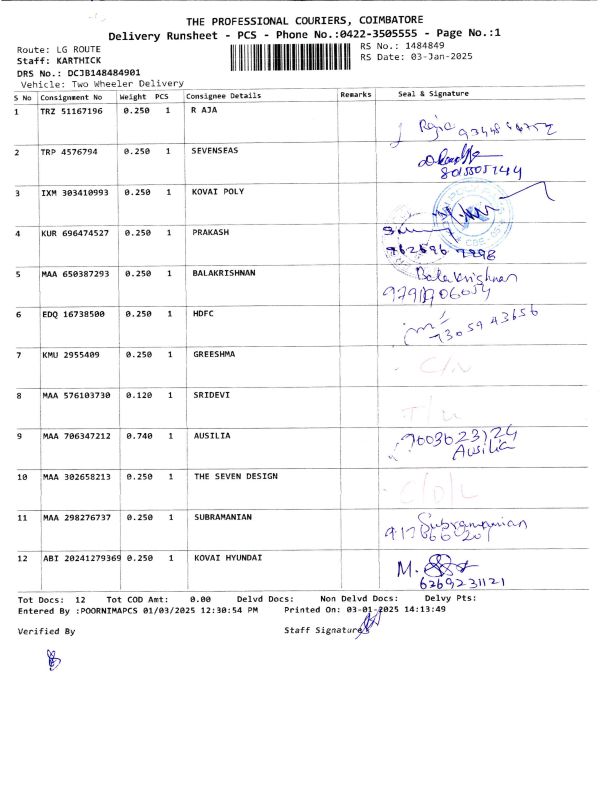 THE PROFESSIONAL COURIERS, COIMBATORE
Delivery Runsheet - PCS - Phone No.:0422-3505555 - Page No.:1
Route: LG ROUTE
RS No.: 1484849
Staff: KARTHICK
RS Date: 03-Jan-2025
DRS No.: DCJB148484901
Vehicle: Two Wheeler Delivery
S No Consignment No Weight PCS Consignee Details Remarks Seal & Signature
1 TRZ 51167196 0.250 1 R AJA
Raja
2 TRP 4576794 0.250 1 SEVENSEAS
8015505744
3 IXM 303410993 0.250 1 KOVAI POLY
4 KUR 696474527 0.250 1 PRAKASH
5 MAA 650387293 0.250 1 BALAKRISHNAN Balakrishnan
6 EDQ 16738500 0.250 1 HDFC 73059 43656
7 KMU 2955409 0.250 1 GREESHMA
8 MAA 576103730 0.120 1 SRIDEVI
9 MAA 706347212 0.740 1 AUSILIA
Ausilia
10 MAA 302658213 0.250 1 THE SEVEN DESIGN
11 MAA 298276737 0.250 1 SUBRAMANIAN Subramanian
12 ABI 20241279369 0.250 1 KOVAI HYUNDAI M.
6269231121
Tot Docs: 12 Tot COD Amt: 0.00 Delvd Docs: Non Delvd Docs: Delvy Pts:
Entered By :POORNIMAPCS 01/03/2025 12:30:54 PM Printed On: 03-01-2025 14:13:49
Verified By Staff Signature